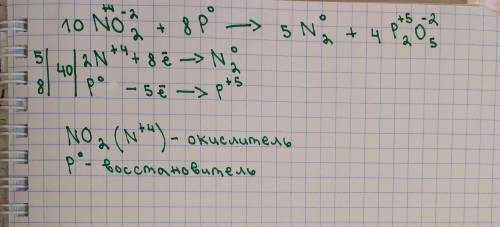 10 N⁺⁴O₂⁻² + 8 P⁰ → 5 N₂⁰ + 4 P₂⁺⁵O₅⁻²
5 | 40 | 2N⁺⁴ + 8ē → N₂⁰
8 | P⁰ - 5ē → P⁺⁵
NO₂ (N⁺⁴) - окислитель
P⁰ - восстановитель